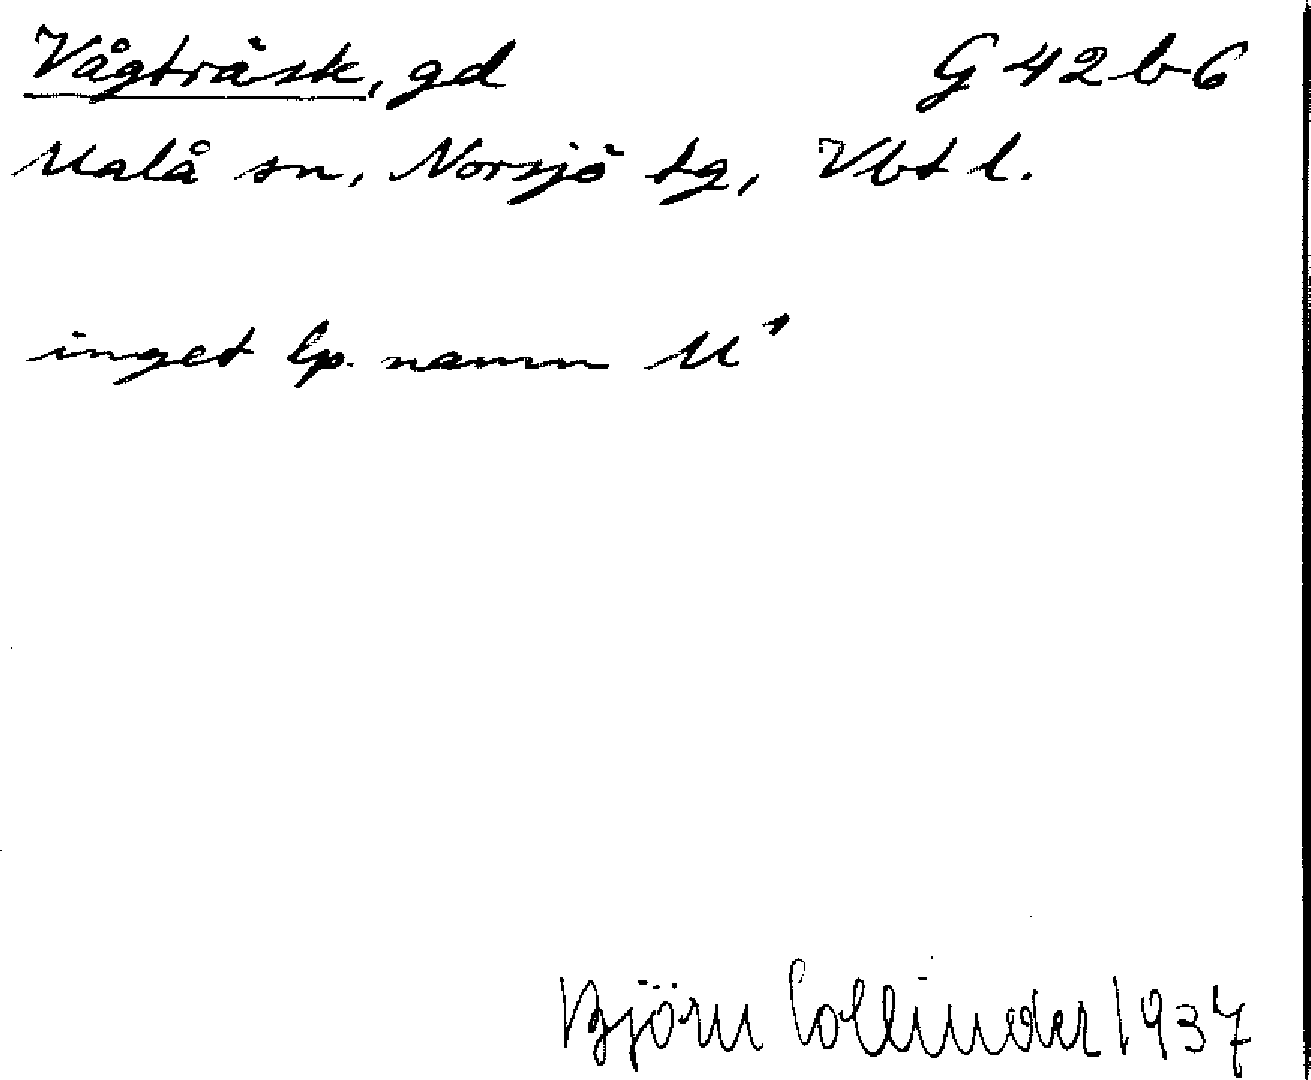 Vågträsk, gd G 42 b 6
Malå sn, Norsjö tg, Vbt l.
inget lp. namn M¹
Björn Collinder 1937